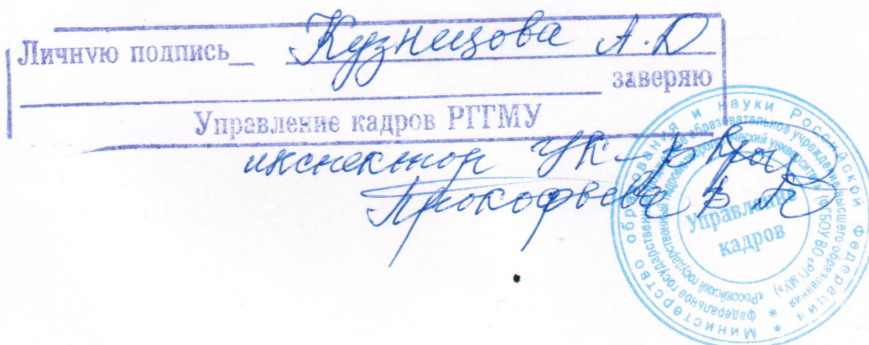 Личную подпись Кузнецова А.Д
заверяю
Управление кадров РГГМУ
инспектор УК
Прокофьева В.
Министерство образования и науки Российской Федерации
федеральное государственное бюджетное образовательное учреждение высшего образования
«Российский государственный гидрометеорологический университет» (ФГБОУ ВО «РГГМУ»)
Управление
кадров